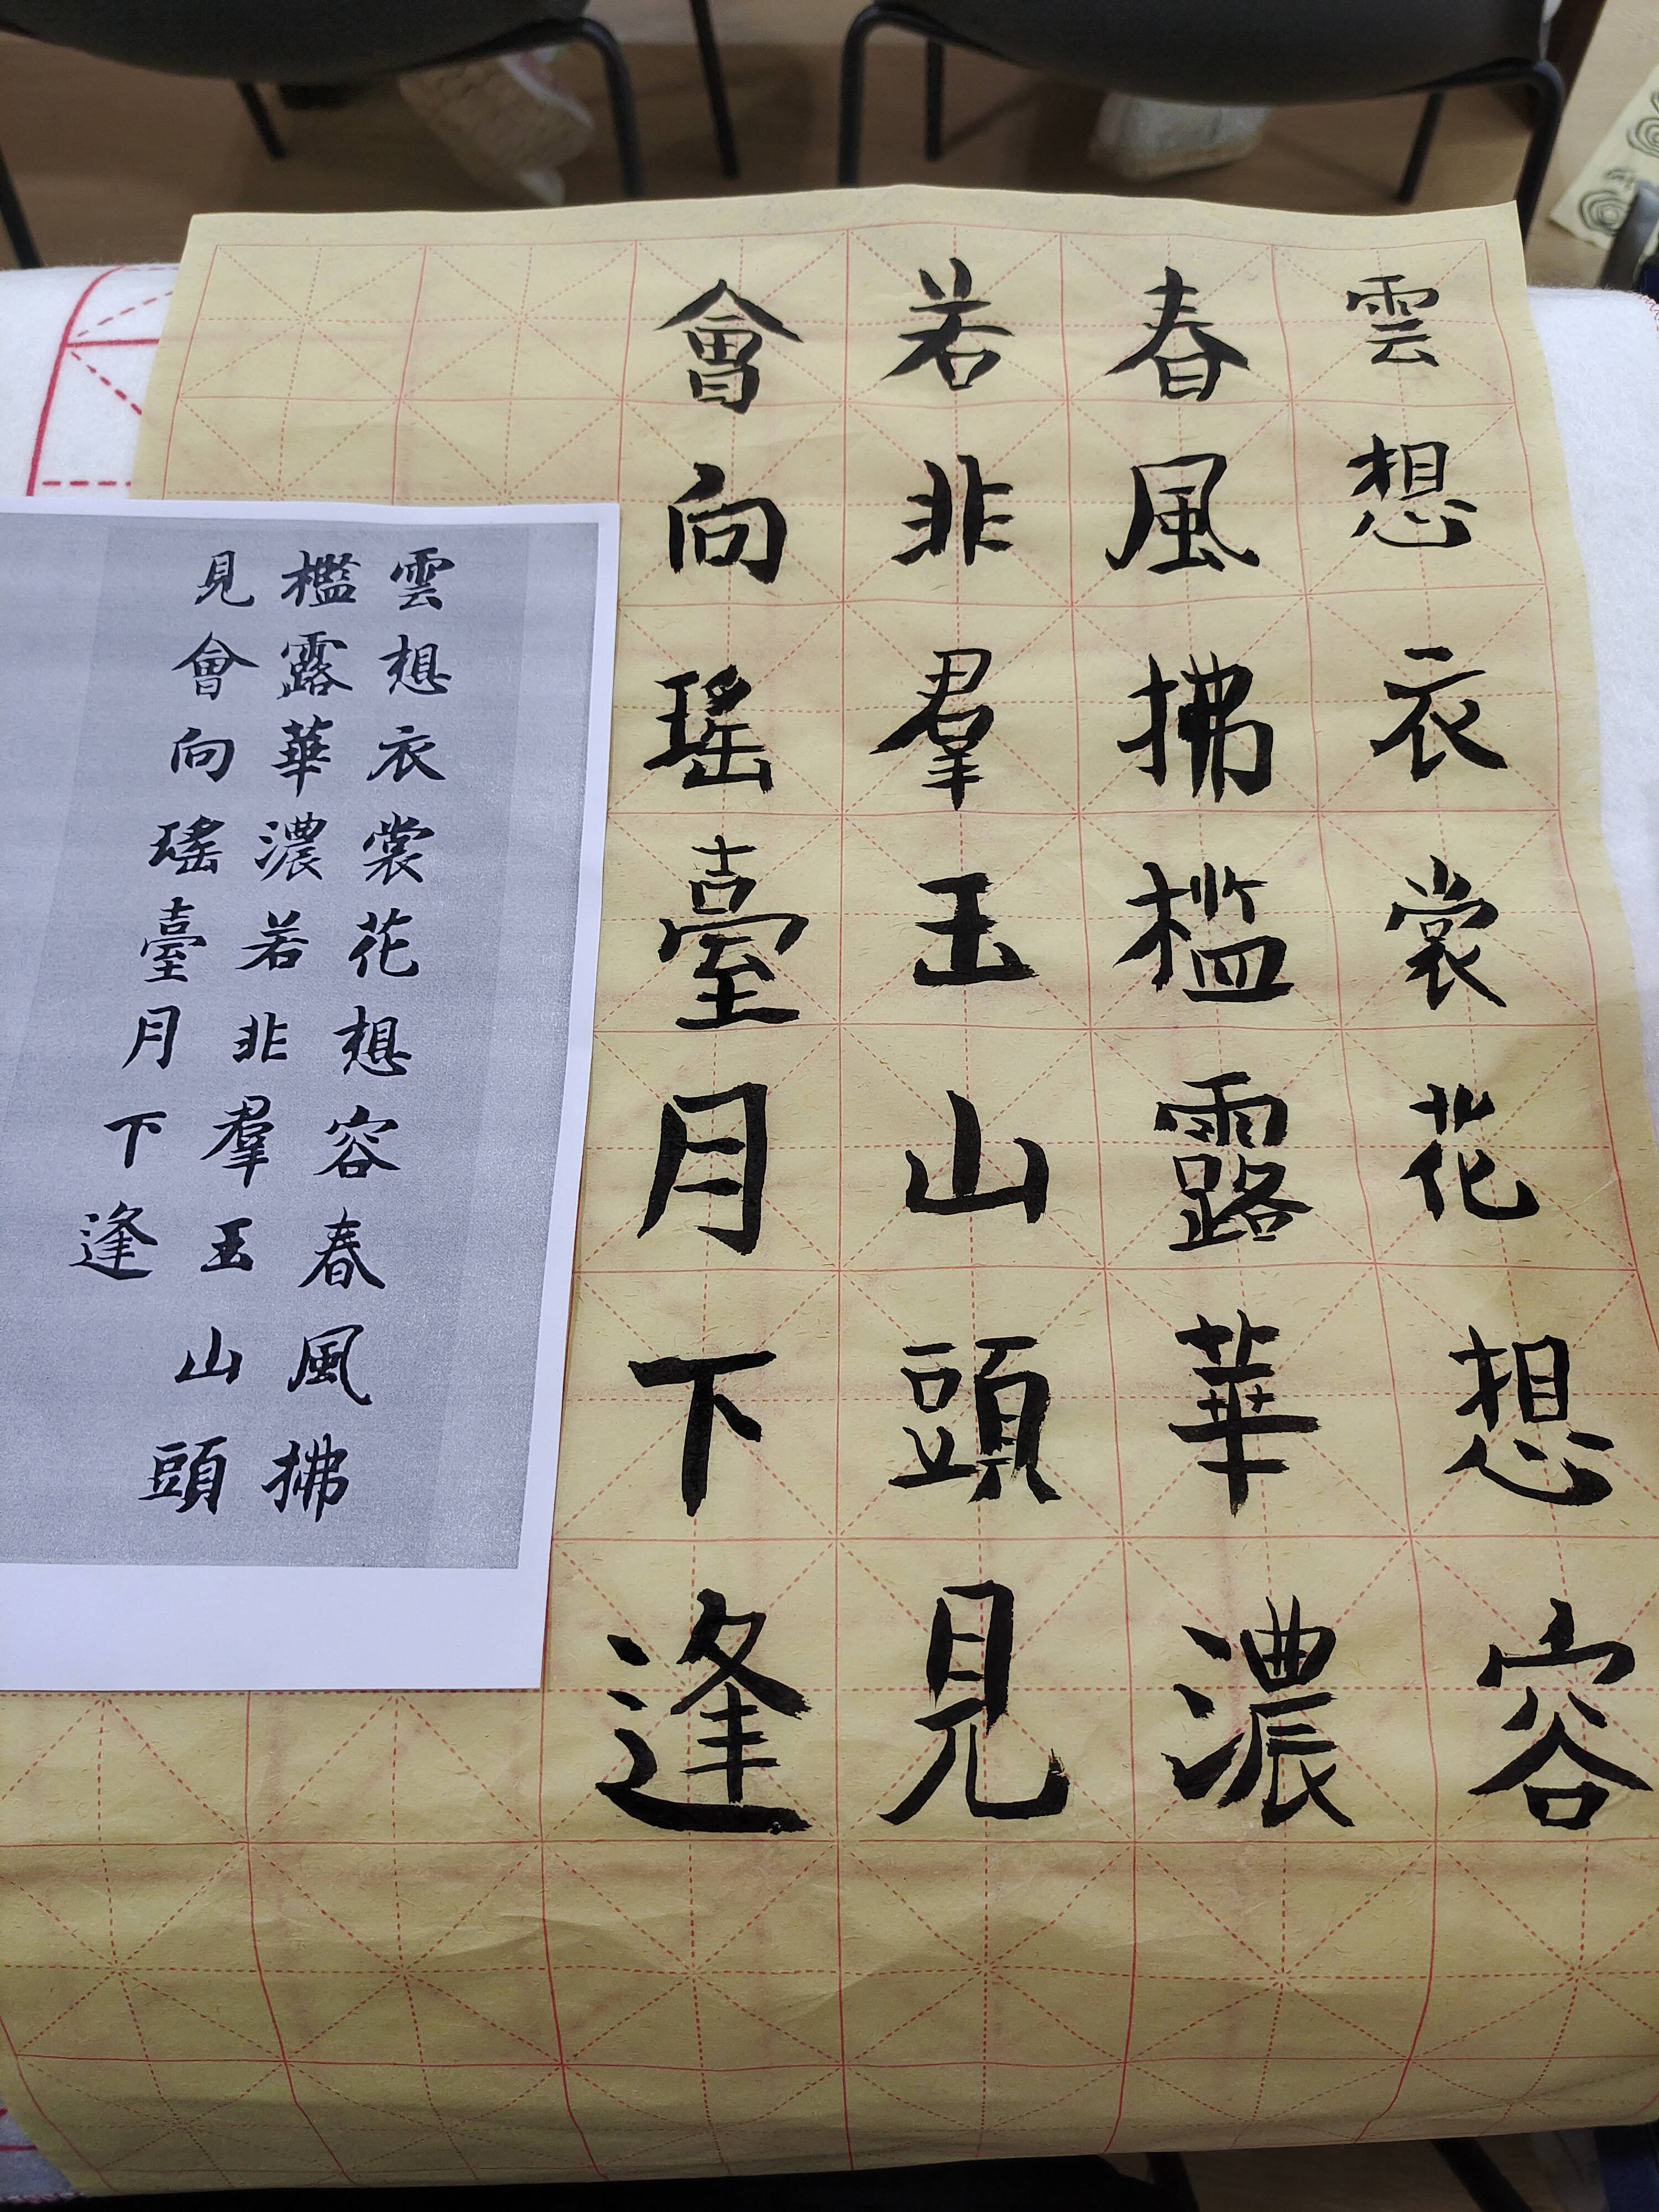 雲想衣裳花想容
春風拂槛露華濃
若非羣玉山頭見
會向瑤臺月下逢
雲想衣裳花想容春風拂
檻露華濃若非羣玉山頭
見會向瑤臺月下逢